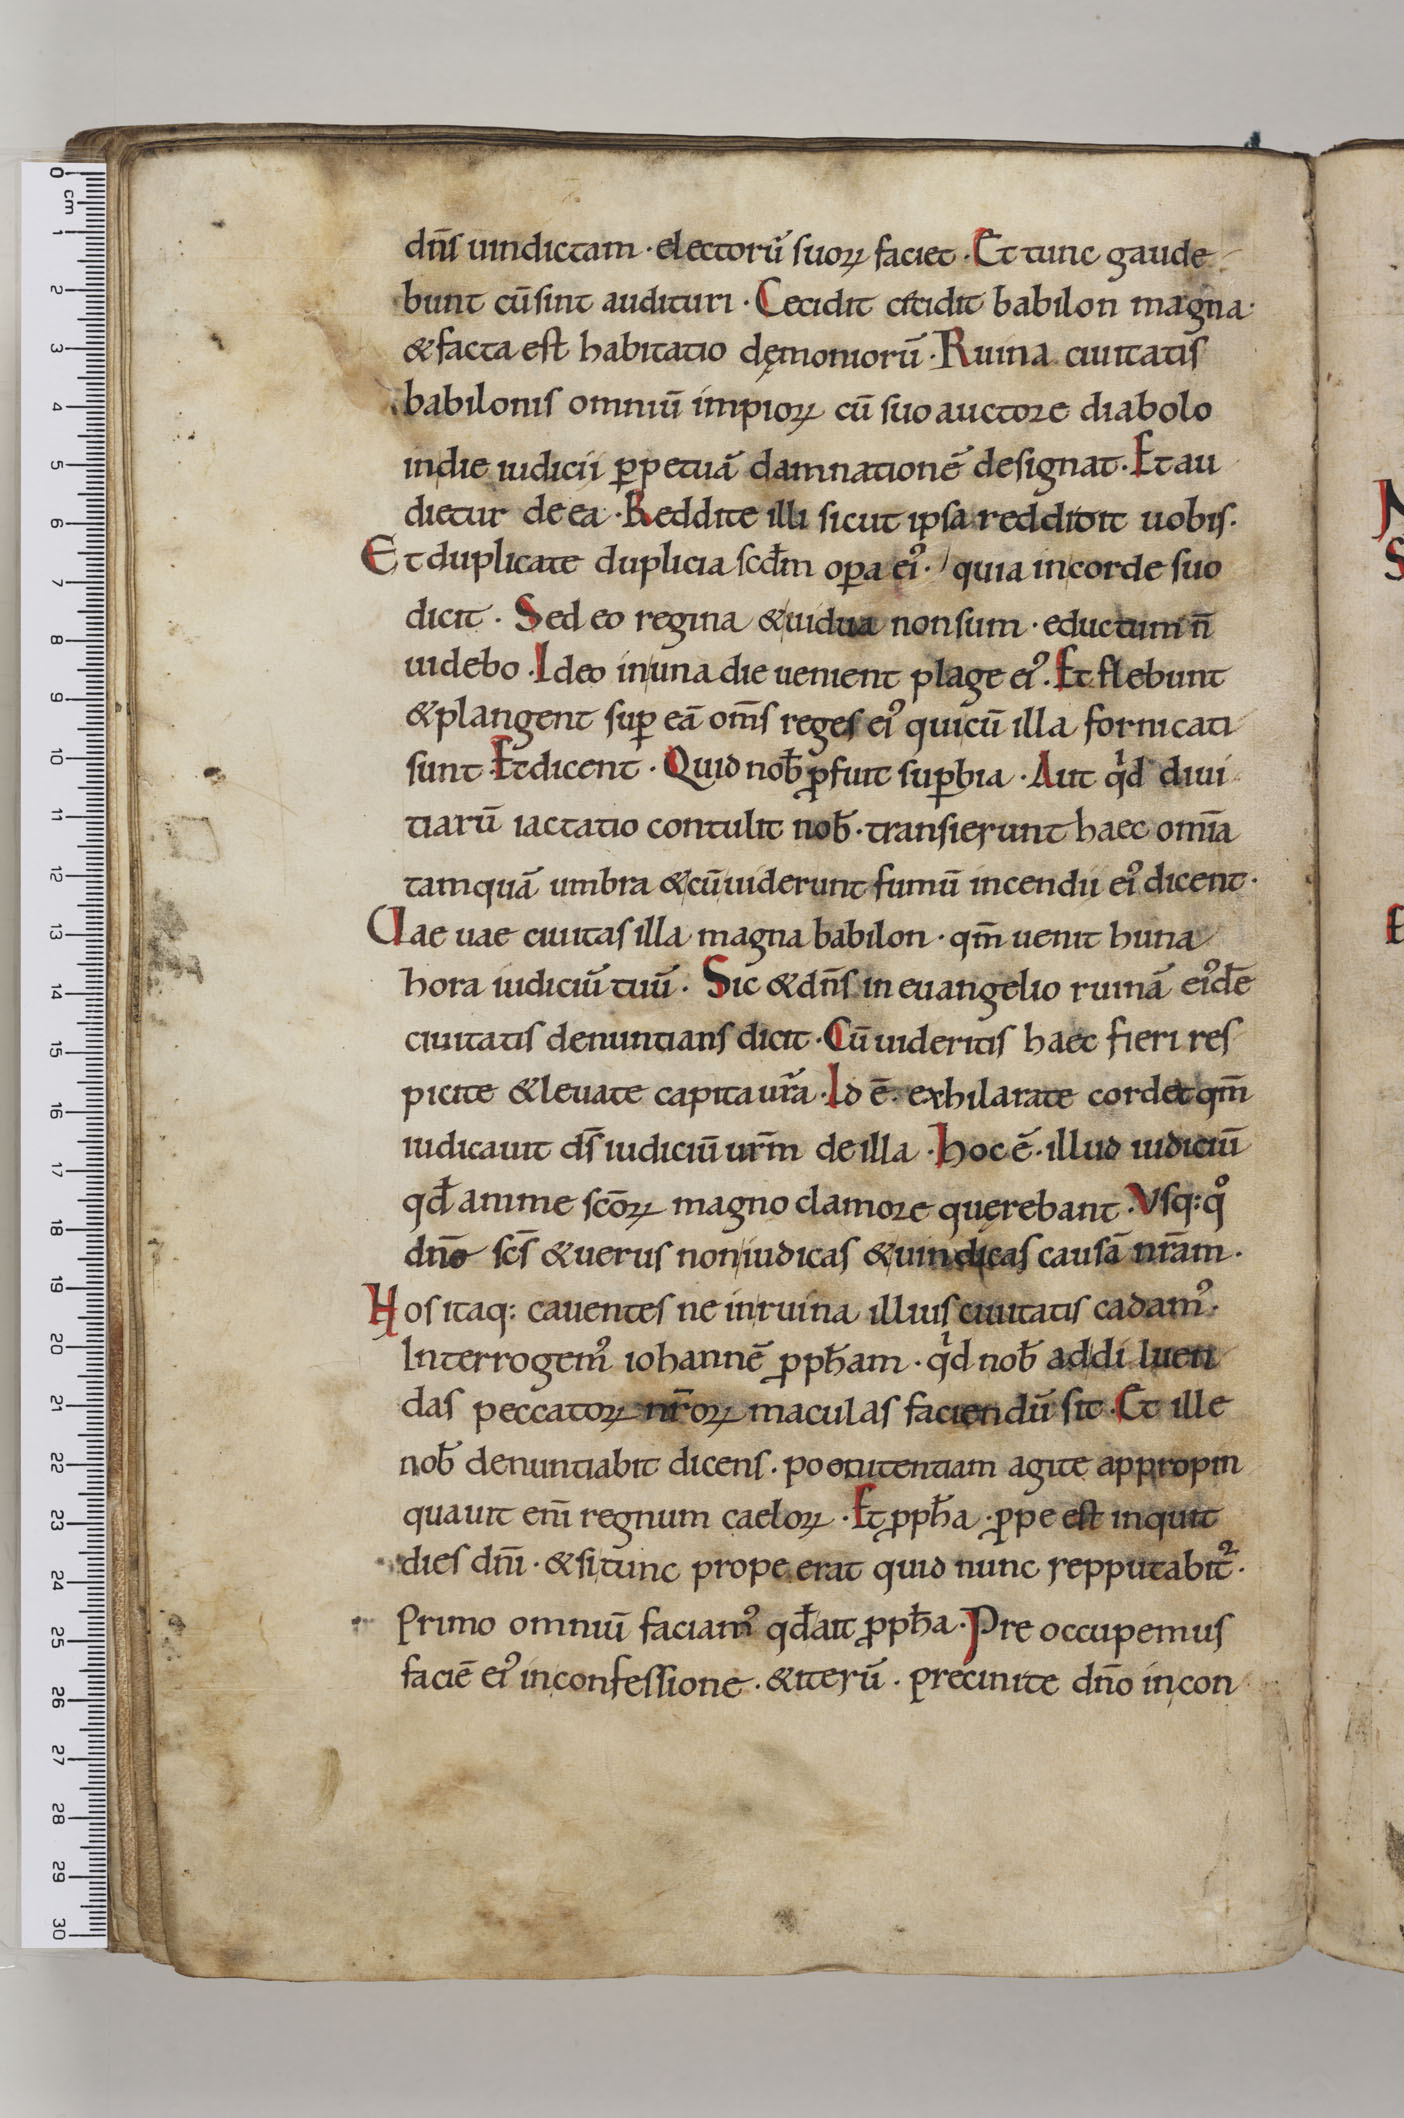 dn̄s uindictam · electorū suoꝝ faciet · Et tunc gaude
bunt cū sint audituri · Cecidit cecidit babilon magna ·
& facta est habitatio dęmoniorū · Ruina ciuitatis
babilonis omniū impioꝝ cū suo auctore diabolo
in die iudicii ꝑpetuā damnationē designat · Et au
dietur de ea · Reddite illi sicut ipsa reddidit uobis ·
Et duplicate duplicia scdm̄ oꝑa ei᾽ · quia in corde suo
dicit · Sedeo regina & uidua non sum · eductum n̄
uidebo · Ideo in una die uenient plage ei᾽ · Et flebunt
& plangent suꝑ eā om̄s reges ei᾽ qui cū illa fornicati
sunt · Et dicent · Quid nob̄ ꝓfuit suꝑbia · Aut qͥd diui
tiarū iactatio contulit nob̄ · transierunt haec omīa
tamquā umbra & cū uiderunt fumū incendii ei᾽ dicent ·
Uae uae ciuitas illa magna babilon · qm̄ uenit huna
hora iudiciū tuū · Sic & dn̄s in euangelio ruinā ei᾽dē
ciuitatis denuntians dicit · Cū uideritis haec fieri res
picite & leuate capita ur̄a · Id ē · exhilarate cordet qm̄
iudicauit ds̄ iudiciū ur̄m de illa · hoc ē · illud iudiciū
qđ anime scōꝝ magno clamore querebant · Vsq: qͦ
dn̄e scs̄ & uerus non iudicas & uindicas causā nr̄am ·
Hos itaq: cauentes ne in ruina illius ciuitatis cadam᾽ ·
Interrogem᾽ iohannē ꝓph̄am · qͥd nob̄ addi luen
das peccatoꝝ nr̄oꝝ maculas faciendū sit · Et ille
nob̄ denuntiabit dicens · poenitentiam agite appropin
quauit eni̅ regnum caeloꝝ · Et ꝓph̄a · ꝓpe est inquit
dies dn̄i · & si tunc prope erat quid nunc repputabit᷑ ·
Primo omniū faciam᾽ qđ ait ꝓph̄a · Pre occupemus
faciē ei᾽ in confessione · & iterū · precinite dn̄o in con